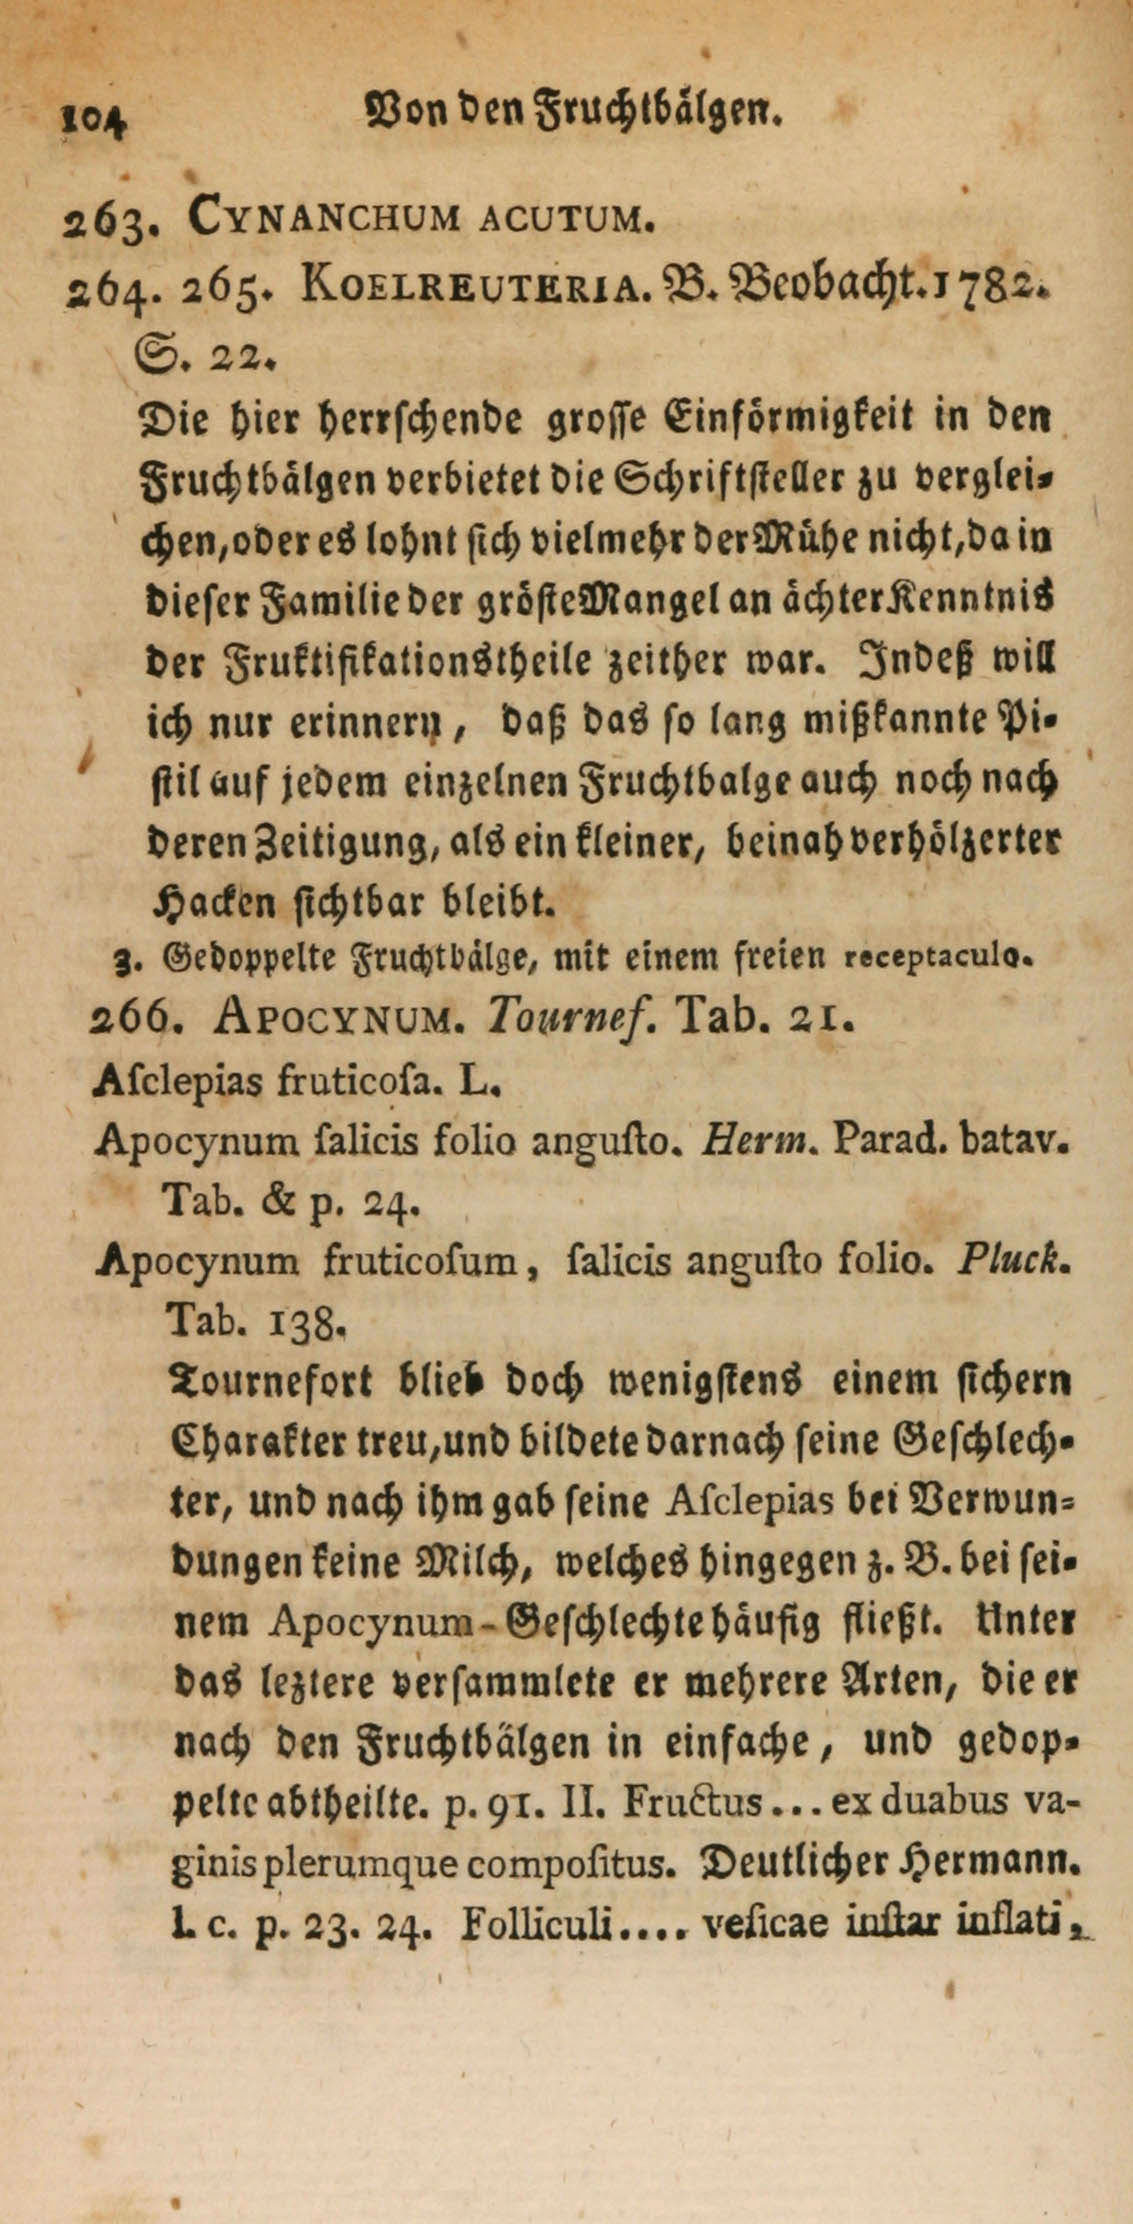 104 Von den Fruchtbälgen.
263. CYNANCHUM ACUTUM.
264. 265. KOELREUTERIA. B. Beobacht. 1782.
S. 22.
Die hier herrschende grosse Einförmigkeit in den
Fruchtbälgen verbietet die Schriftsteller zu verglei-
chen, oder es lohnt sich vielmehr der Mühe nicht, da in
dieser Familie der gröste Mangel an ächter Kenntnis
der Fruktifikationstheile zeither war. Indeß will
ich nur erinnern, daß das so lang mißkannte Pi-
stil auf jedem einzelnen Fruchtbalge auch noch nach
deren Zeitigung, als ein kleiner, beinah verhölzerter
Hacken sichtbar bleibt.
3. Gedoppelte Fruchtbälge, mit einem freien receptaculo.
266. APOCYNUM. Tournef. Tab. 21.
Aſclepias fruticoſa. L.
Apocynum ſalicis folio anguſto. Herm. Parad. batav.
Tab. & p. 24.
Apocynum fruticoſum, ſalicis anguſto folio. Pluck.
Tab. 138.
Tournefort blieb doch wenigstens einem sichern
Charakter treu, und bildete darnach seine Geschlech-
ter, und nach ihm gab seine Aſclepias bei Verwun-
dungen keine Milch, welches hingegen z. B. bei sei-
nem Apocynum-Geschlechte häufig fließt. Unter
das leztere versammlete er mehrere Arten, die er
nach den Fruchtbälgen in einfache, und gedop-
pelte abtheilte. p. 91. II. Fructus... ex duabus va-
ginis plerumque compoſitus. Deutlicher Hermann.
l. c. p. 23. 24. Folliculi.... veſicae inſtar inflati,